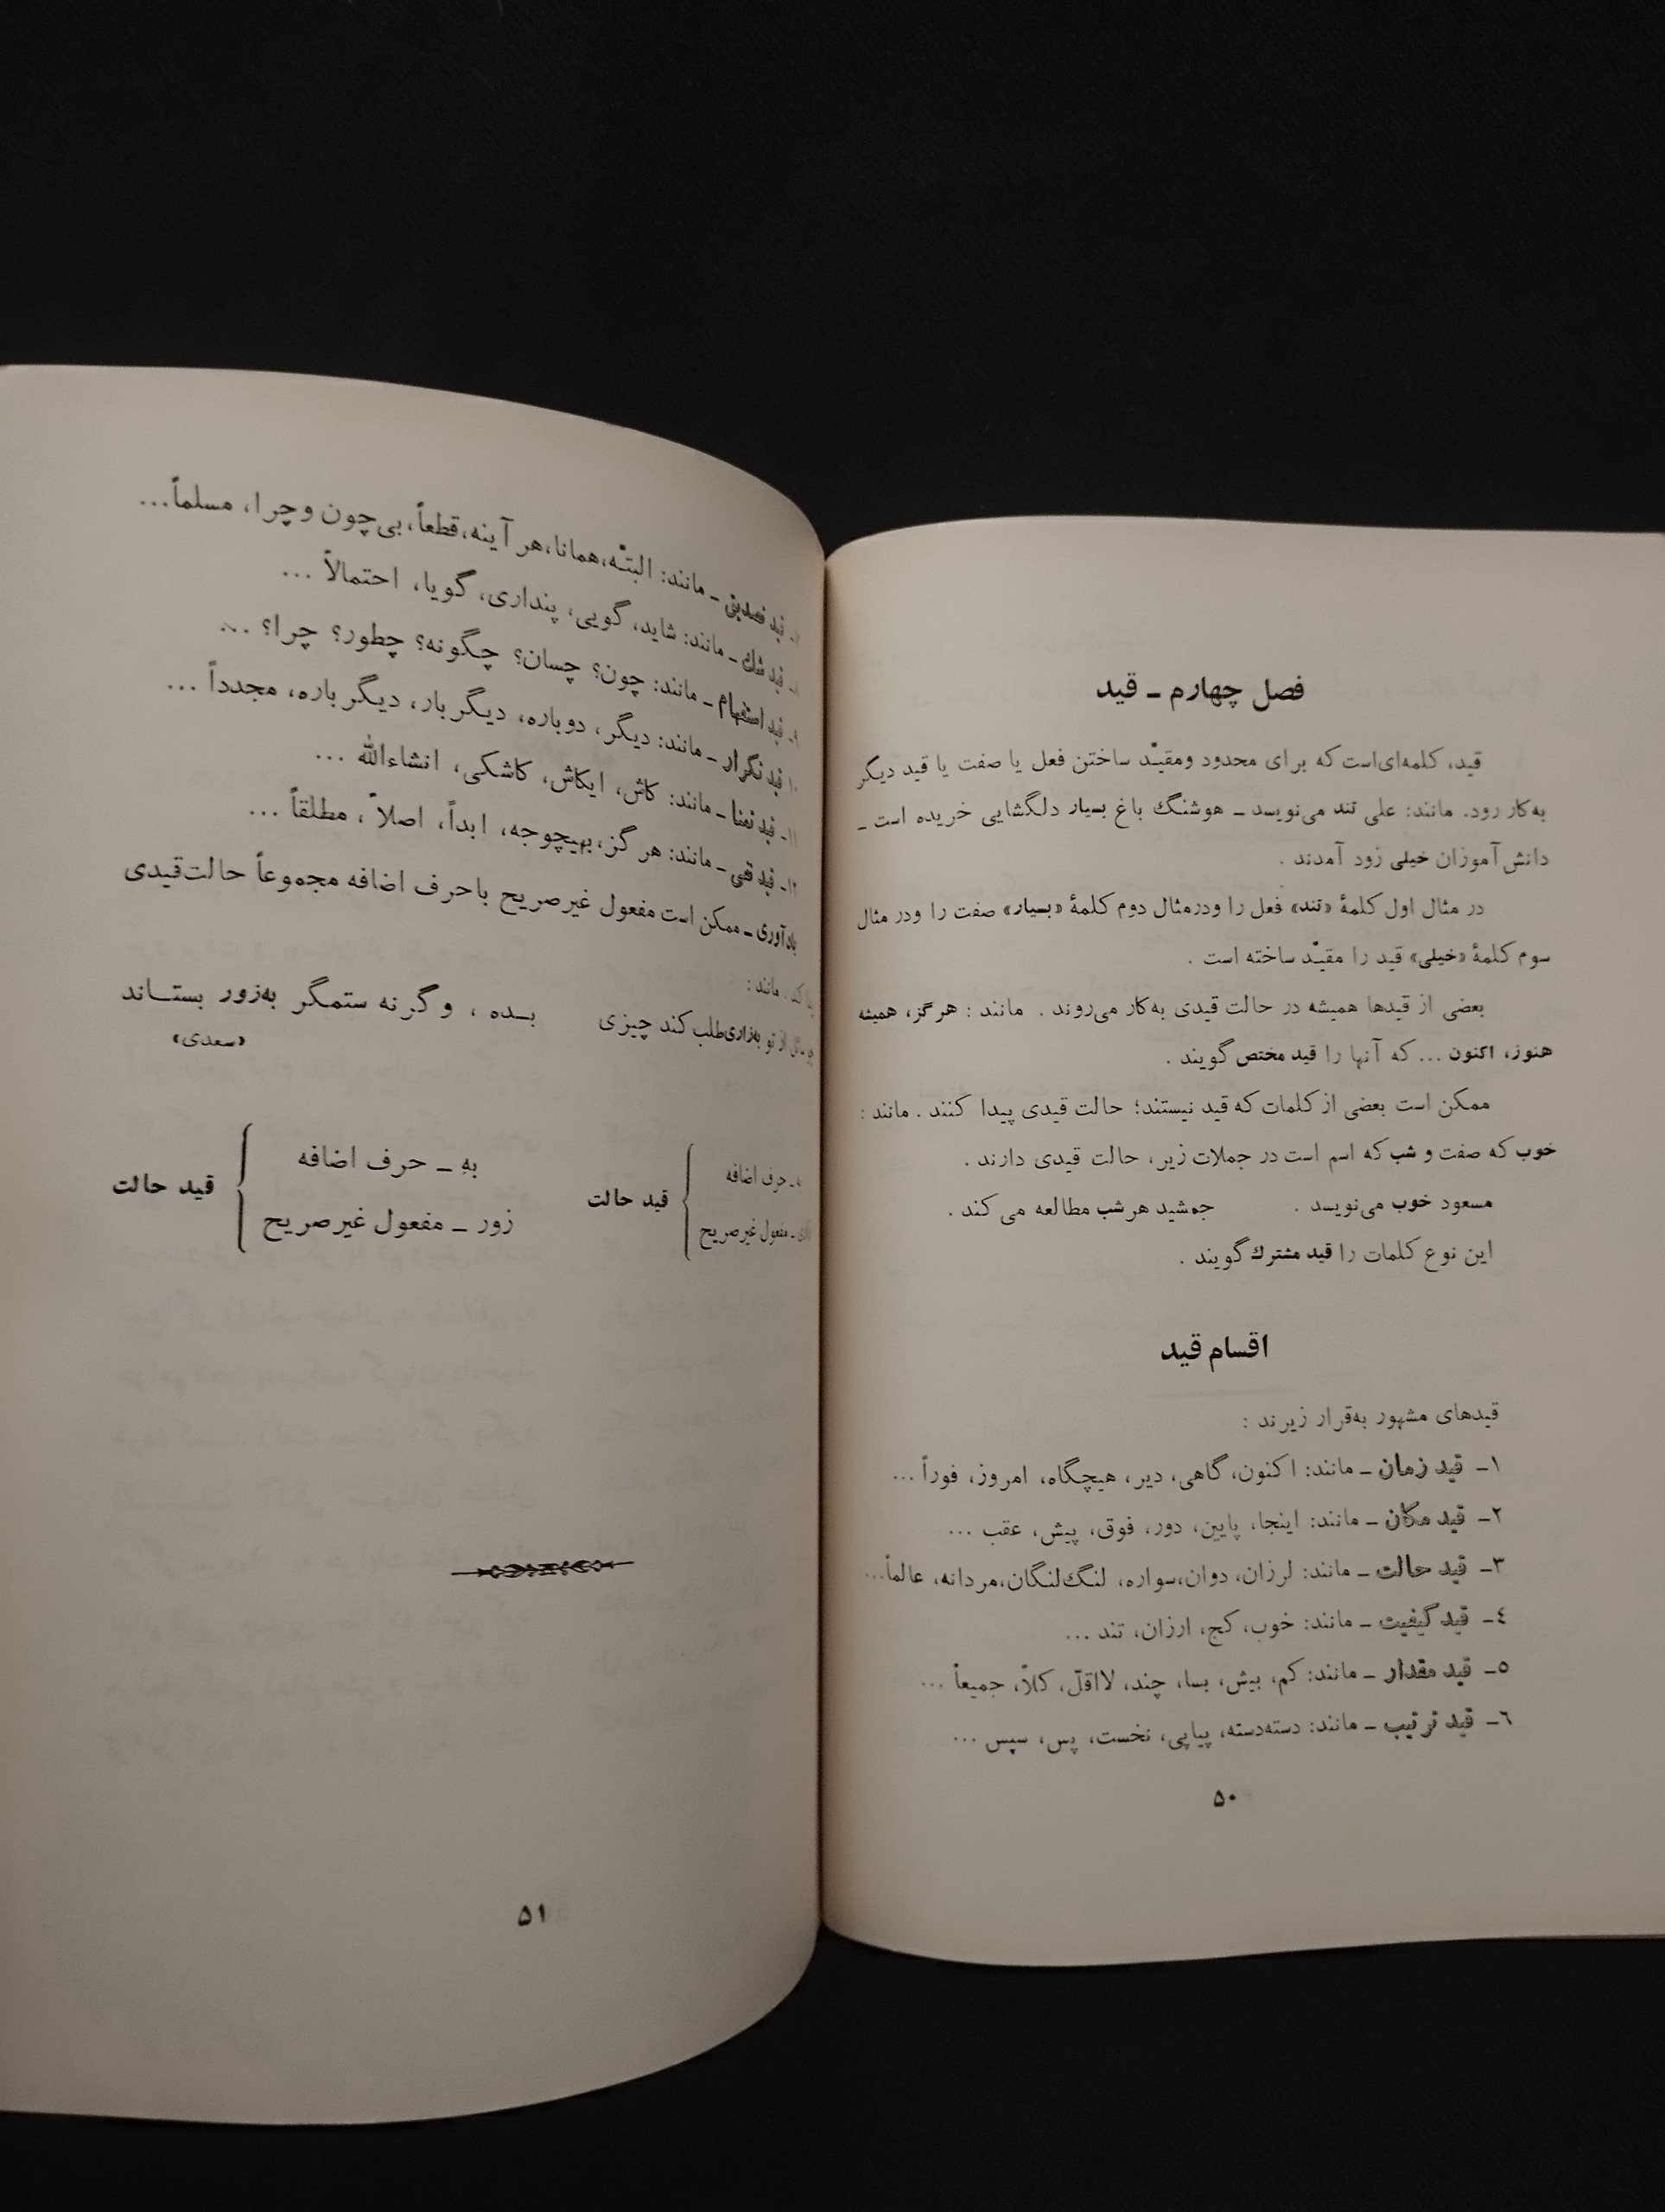 فصل چهارم ـ قید
قید، کلمه‌ای‌است که برای محدود ومقیّد ساختن فعل یا صفت یا قید دیگر
به‌کار رود. مانند: علی تند می‌نویسد ـ هوشنگ باغ بسیار دلگشایی خریده است ـ
دانش‌آموزان خیلی زود آمدند .
در مثال اول کلمهٔ «تند» فعل را ودرمثال دوم کلمهٔ «بسیار» صفت را ودر مثال
سوم کلمهٔ «خیلی» قید را مقیّد ساخته است .
بعضی از قیدها همیشه در حالت قیدی به‌کار می‌روند . مانند : هرگز، همیشه
هنوز، اکنون ... که آنها را قید مختص گویند .
ممکن است بعضی از کلمات که قید نیستند؛ حالت قیدی پیدا کنند . مانند :
خوب که صفت و شب که اسم است در جملات زیر، حالت قیدی دارند .
مسعود خوب می‌نویسد . جمشید هرشب مطالعه می کند .
این نوع کلمات را قید مشترك گویند .
اقسام قید
قیدهای مشهور به‌قرار زیرند :
۱ـ قید زمان ـ مانند: اکنون، گاهی، دیر، هیچگاه، امروز، فوراً ...
۲ـ قید مکان ـ مانند: اینجا، پایین، دور، فوق، پیش، عقب ...
۳ـ قید حالت ـ مانند: لرزان، دوان،سواره، لنگ‌لنگان،مردانه، عالماً...
٤ـ قید کیفیت ـ مانند: خوب، کج، ارزان، تند ...
۵ـ قید مقدار ـ مانند: کم، بیش، بسا، چند، لااقلّ، کلاً، جمیعاً ...
٦ـ قید ترتیب ـ مانند: دسته‌دسته، پیاپی، نخست، پس، سپس ...
۵۰
قید تصدیق ـ مانند: البتّه،همانا،هر آینه،قطعاً،بی‌چون وچرا، مسلماً...
۸ـ قید شك ـ مانند: شاید، گویی، پنداری، گویا، احتمالاً ...
۹ـ قید استفهام ـ مانند: چون؟ چسان؟ چگونه؟ چطور؟ چرا؟ ...
۱۰ قید تکرار ـ مانند: دیگر، دوباره، دیگربار، دیگرباره، مجدداً ...
۱۱ـ قید تمنا ـ مانند: کاش، ایکاش، کاشکی، انشاءالله ...
۱۲ـ قید نفی ـ مانند: هرگز،بهیچوجه، ابداً، اصلاً، مطلقاً ...
یادآوری ـ ممکن است مفعول غیرصریح باحرف اضافه مجموعاً حالت‌قیدی
کند . مانند :
سائل از تو به‌زاری‌طلب کند چیزی بـده ، وگرنه ستمگر به‌زور بستـاند
«سعدی»
ـ حرف اضافه
ـ مفعول غیرصریح
قید حالت
به ـ حرف اضافه
زور ـ مفعول غیرصریح
قید حالت
۵۱